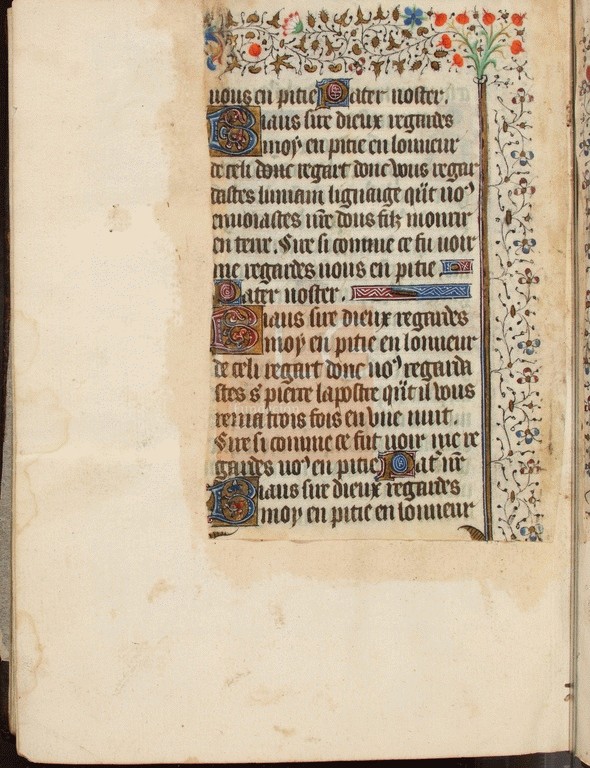 nous en pitie Pater noster.
Biaus sire dieux regardes
moy en pitie en lonneur
de celi douc regart donc vous regar
dastes lumain lignaige qñt uoꝰ
enuoiastes ur̃e dous filz mourir
en terre. Sire si comme ce fu uoir
me regardes nous en pitie
Pater noster.
Biaus sire dieux regardes
moy en pitie en lonneur
de celi regart donc uoꝰ regarda
stes s̃ pierre lapostre qñt il vous
renia trois fois en vne nuit.
Sire si comme ce fut uoir me re
gardes noꝰ en pitie Pat̃ nr̃e
Biaus sire dieux regardes
moy en pitie en lonneur